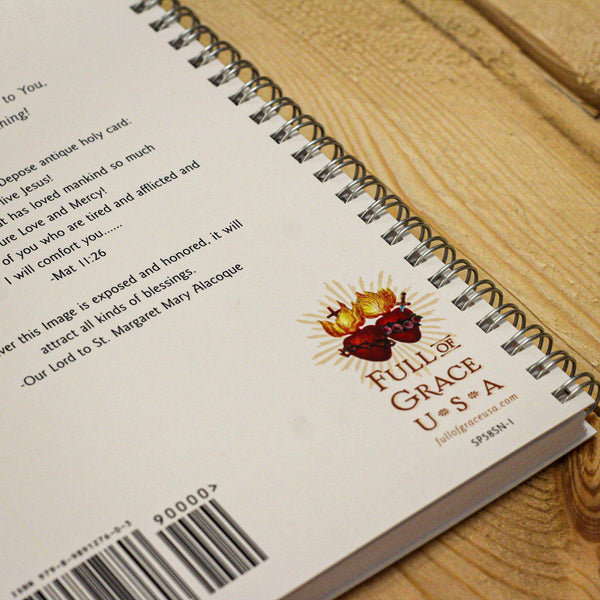 to You,
thing!
Depose antique holy card:
live Jesus!
at has loved mankind so much
ure Love and Mercy!
of you who are tired and afflicted and
I will comfort you......
-Mat 11:26
ver this Image is exposed and honored, it will
attract all kinds of blessings.
-Our Lord to St. Margaret Mary Alacoque
FULL OF
GRACE
U S A
fullofgraceusa.com
SP58SN-1
90000>
ISBN 979-8-9891276-0-3